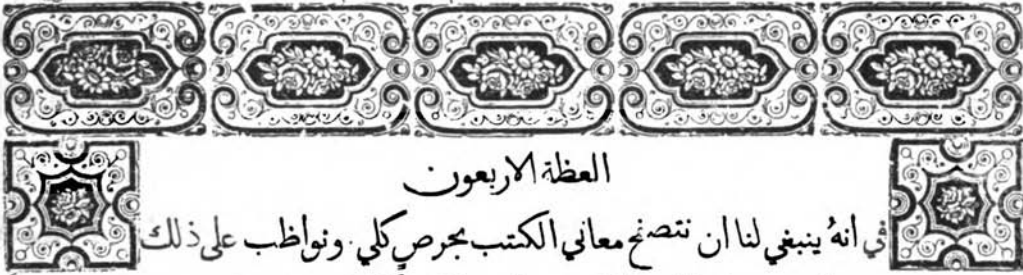 العظة الاربعون
في انهُ ينبغي لنا ان نتصفح معاني الكتب بحرصٍ كلي. ونواظب على ذلك